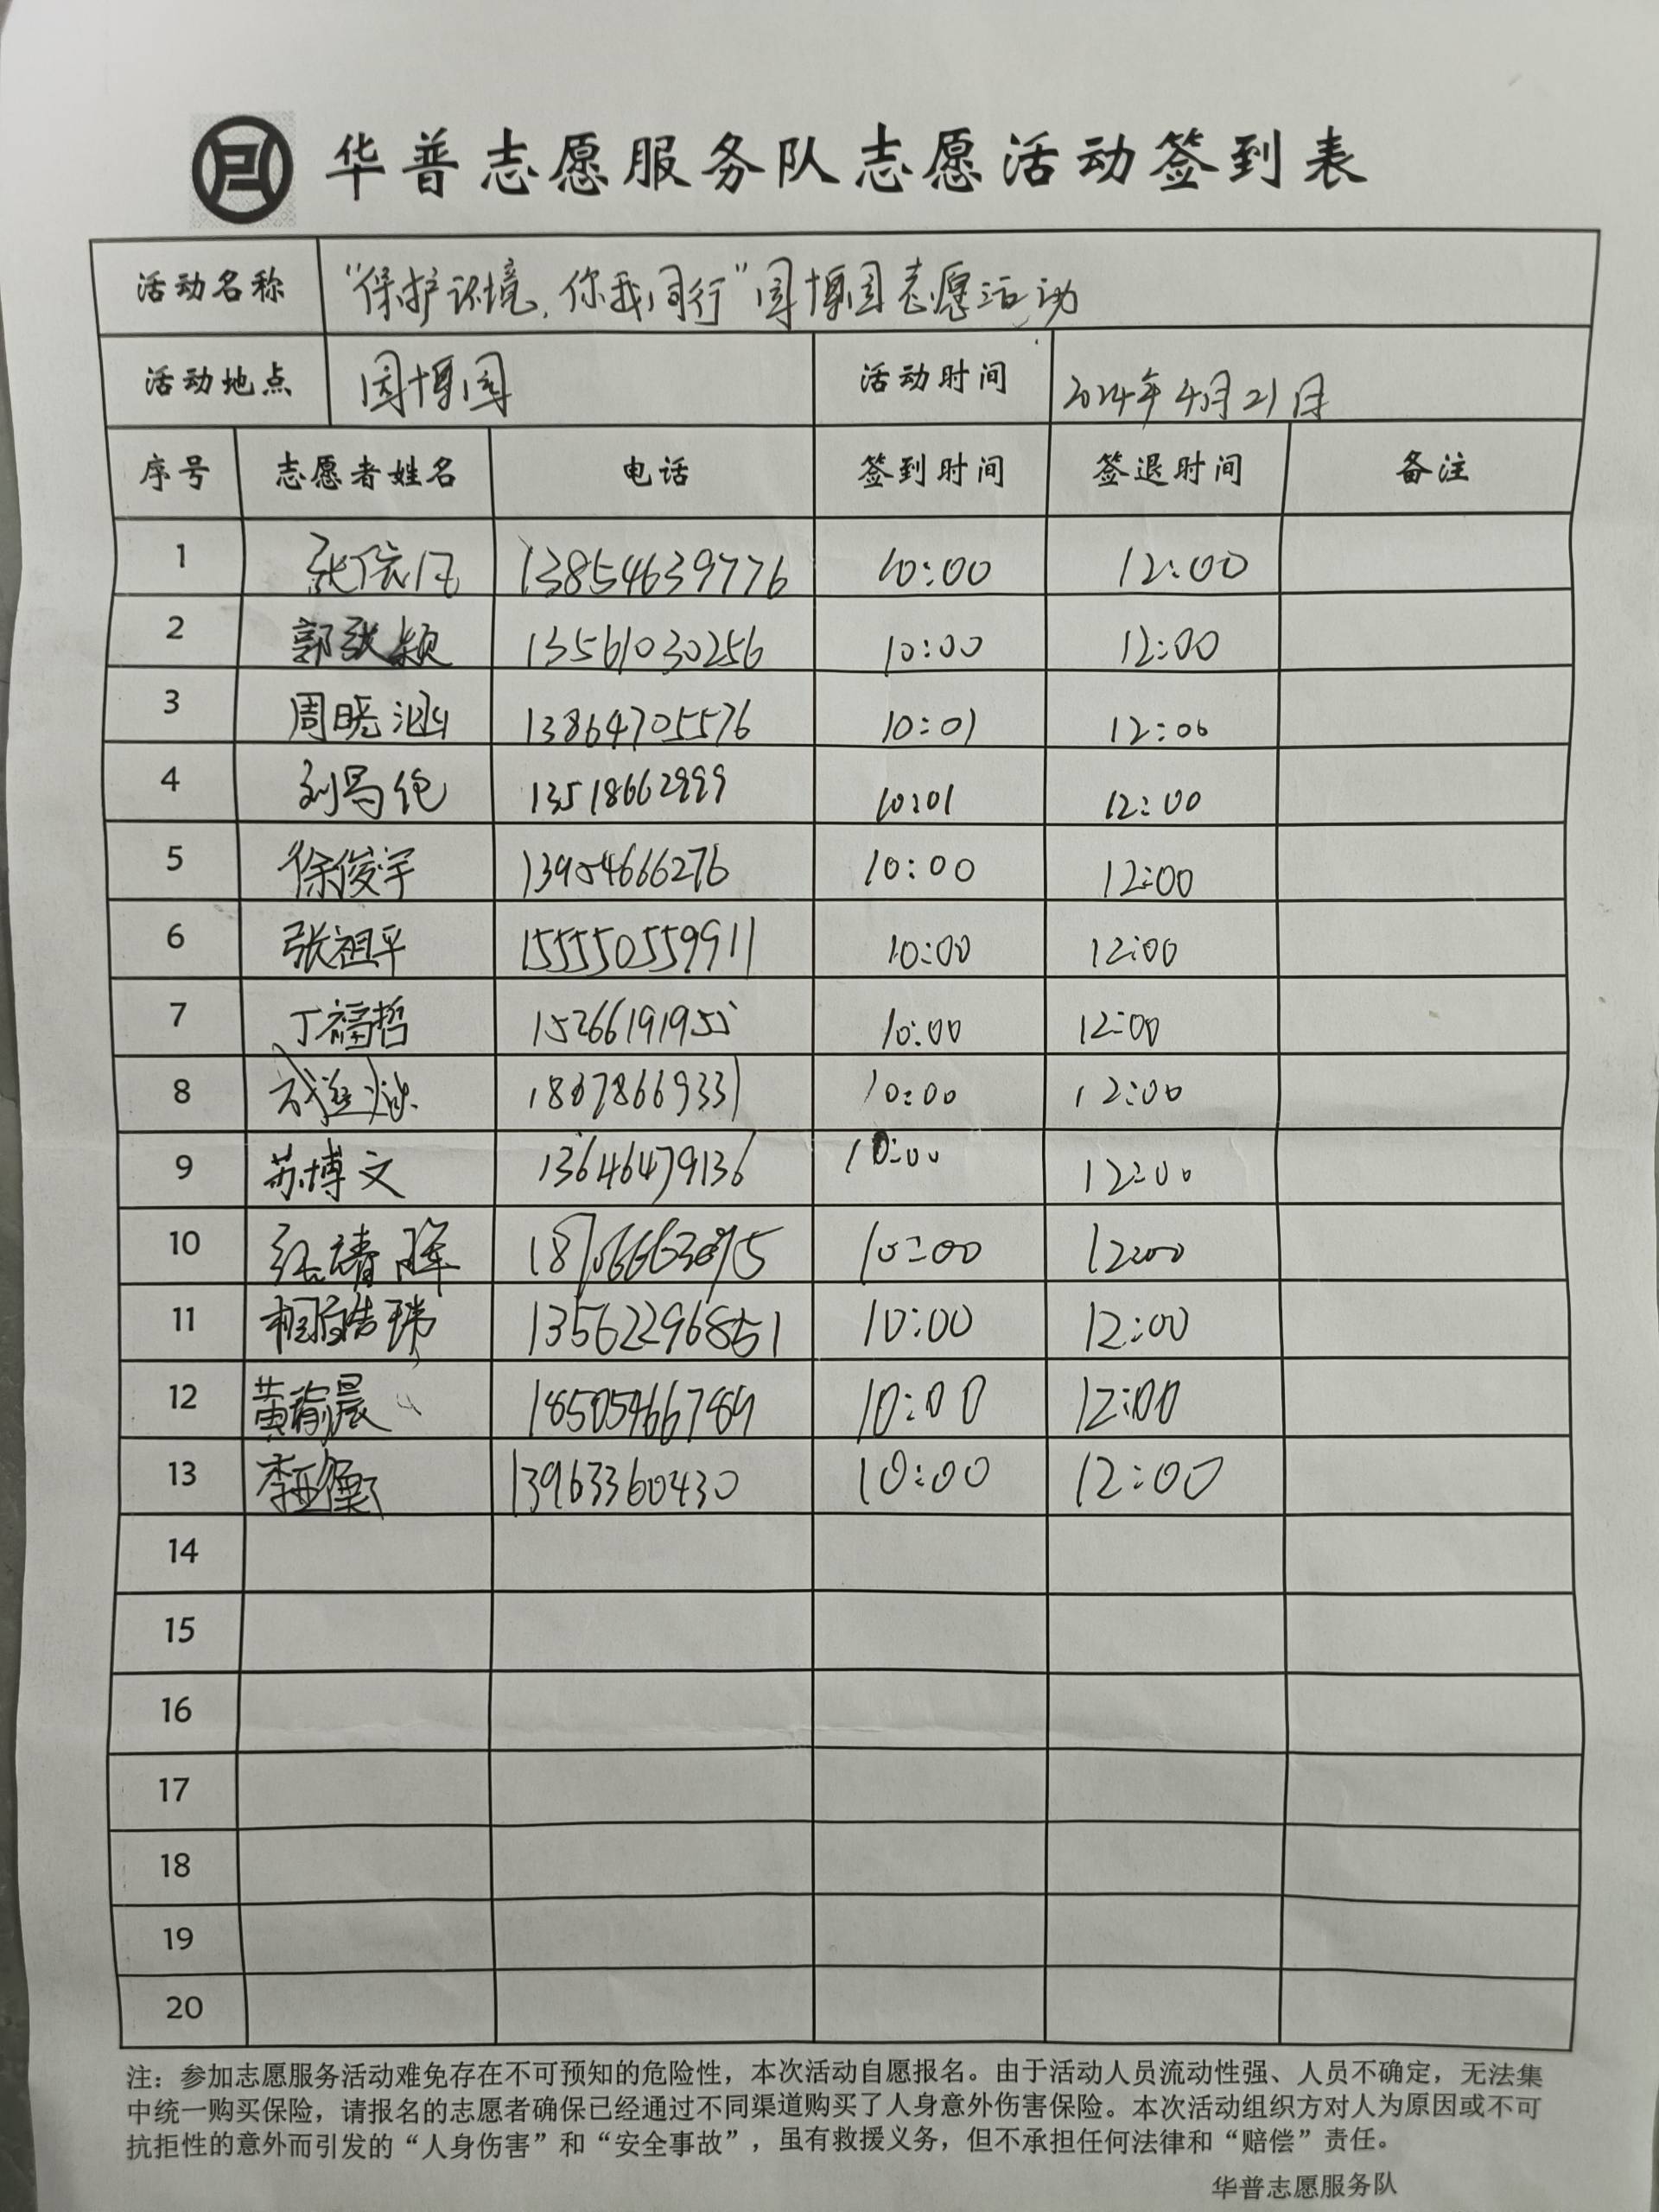 华普志愿服务队志愿活动签到表
活动名称 “保护环境,你我同行”园博园志愿活动
活动地点 园博园 活动时间 2024年4月21日
序号 志愿者姓名 电话 签到时间 签退时间 备注
1 13854639776 10:00 12:00
2 郭 颖 13561030256 10:00 12:00
3 周晓 13864705576 10:01 12:00
4 刘 13518662999 10:01 12:00
5 徐俊宇 13954666276 10:00 12:00
6 张祖平 155550559911 10:00 12:00
7 丁福哲 15266191955 10:00 12:00
8 18678669331 10:00 12:00
9 苏博文 13646479136 10:00 12:00
10 10:00 12:00
11 13562296851 10:00 12:00
12 黄瑜晨 18505466789 10:00 12:00
13 李 13963360430 10:00 12:00
14
15
16
17
18
19
20
注：参加志愿服务活动难免存在不可预知的危险性，本次活动自愿报名。由于活动人员流动性强、人员不确定，无法集
中统一购买保险，请报名的志愿者确保已经通过不同渠道购买了人身意外伤害保险。本次活动组织方对人为原因或不可
抗拒性的意外而引发的“人身伤害”和“安全事故”，虽有救援义务，但不承担任何法律和“赔偿”责任。
华普志愿服务队